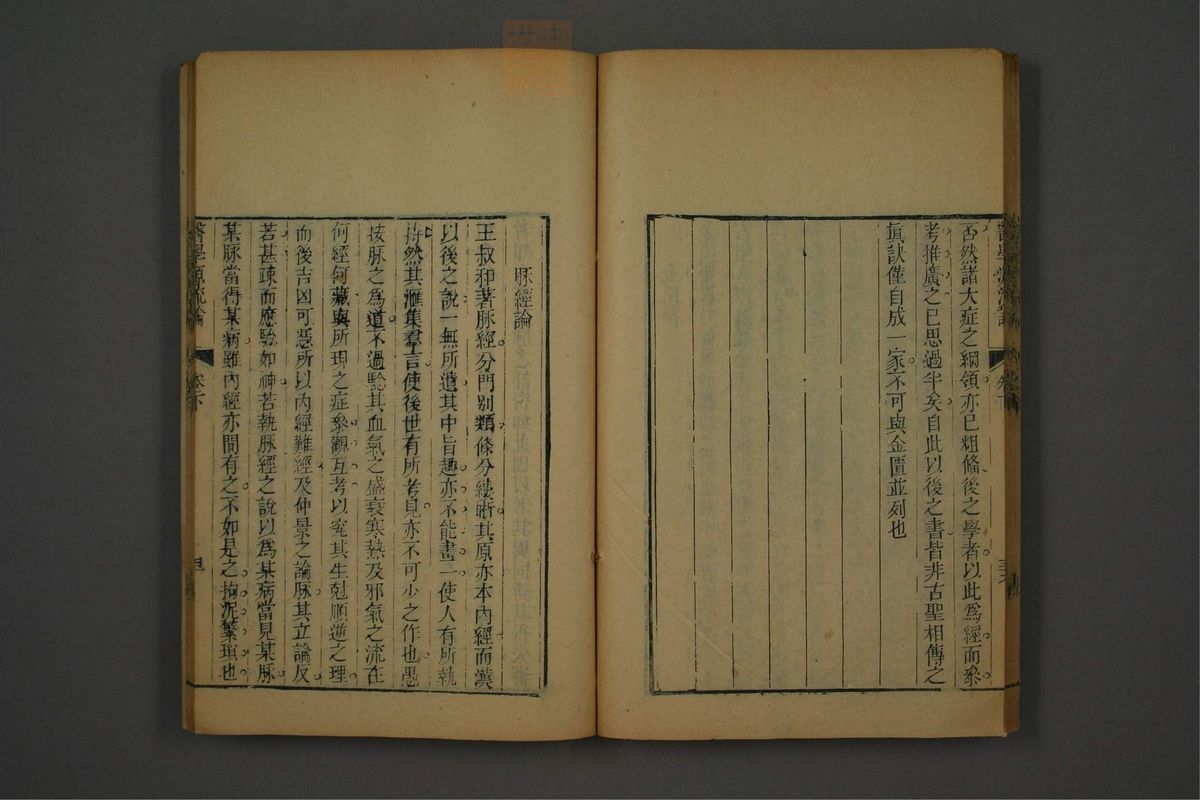 否然諸大症之綱領亦已粗備後之學者以此爲經而叅
考推廣之已思過半矣自此以後之書皆非古聖相傳之
眞訣僅自成一家不可與金匱並列也
脈經論
王叔和著脈經分門别類條分縷晰其原亦本內經而漢
以後之說一無所遺其中旨趣亦不能畫一使人有所執
持然其滙集羣言使後世有所考見亦不可少之作也愚
按脈之爲道不過驗其血氣之盛衰寒熱及邪氣之流在
何經何藏與所現之症叅觀互考以究其生尅順逆之理
而後吉凶可憑所以內經難經及仲景之論脈其立論反
若甚疎而應驗如神若執脈經之說以爲某病當見某脈
某脈當得某病雖內經亦間有之不如是之拘泥繁瑣也
醫學源流論
卷下